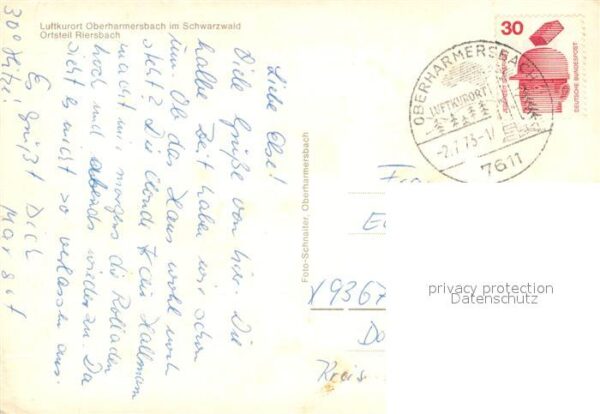 Luftkurort Oberharmersbach im Schwarzwald
Ortsteil Riersbach
Liebe Else!
Viele Grüße von hier. Die
halbe Zeit haben wir schon
um. Ob das Haus wohl noch
steht? Die Gonde
macht mir morgens die Rolladen
hoch und abends wieder zu. Da
sieht es nicht so verlassen aus.
Es grüßt Dich
Margot
30° Hitze!
Foto-Schnaiter, Oberharmersbach
30
DEUTSCHE BUNDESPOST
OBERHARMERSBACH
LUFTKURORT
-2.7.73-1
7611
Kreis
privacy protection
Datenschutz